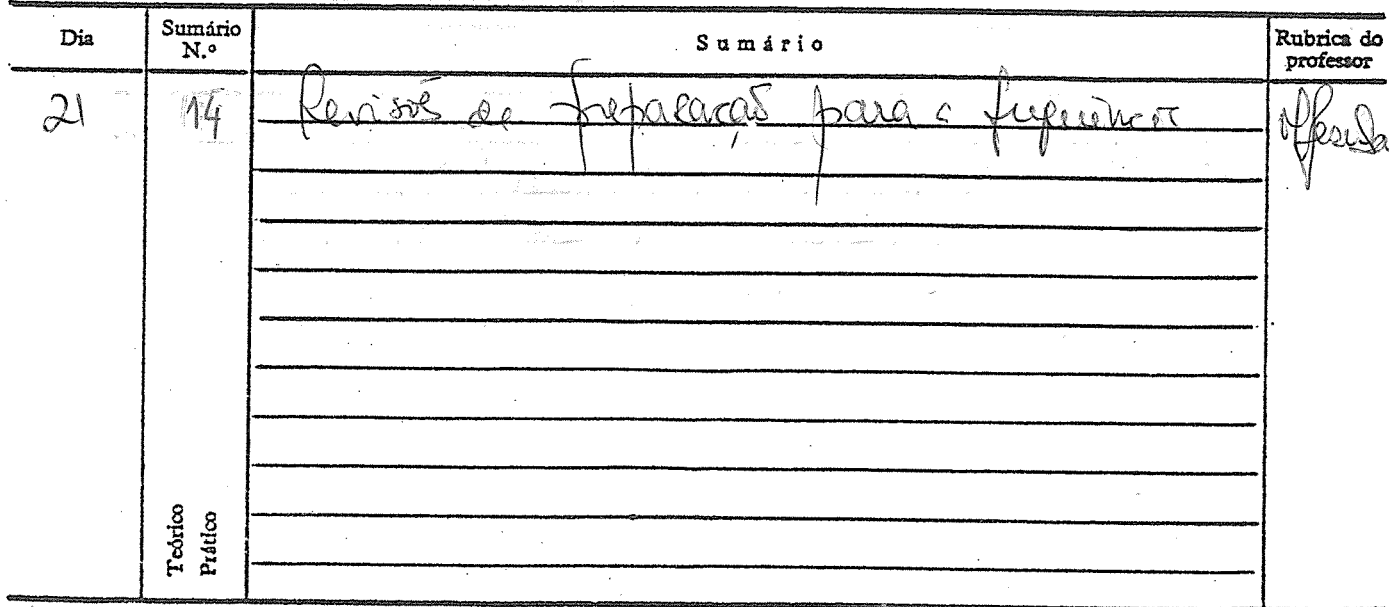 Dia Sumário N.º Sumário Rubrica do professor
21 14 Revisões de preparação para a frequência
Teórico
Prático